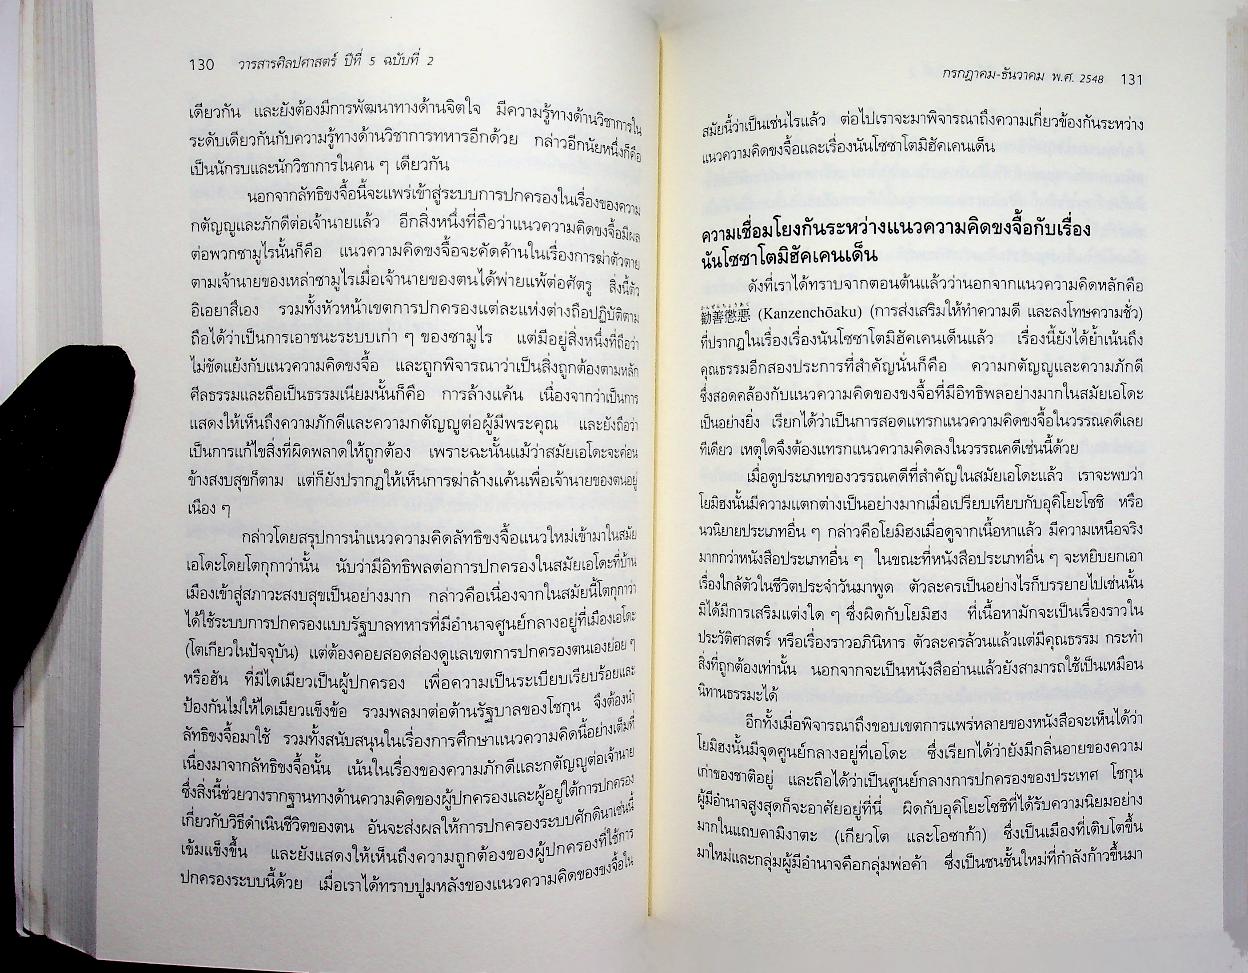 130 วารสารศิลปศาสตร์ ปีที่ 5 ฉบับที่ 2
เดียวกัน และยังต้องมีการพัฒนาทางด้านจิตใจ มีความรู้ทางด้านวิชาการใน
ระดับเดียวกันกับความรู้ทางด้านวิชาการทหารอีกด้วย กล่าวอีกนัยหนึ่งก็คือ
เป็นนักรบและนักวิชาการในคน ๆ เดียวกัน
นอกจากลัทธิขงจื้อนี้จะแพร่เข้าสู่ระบบการปกครองในเรื่องของความ
กตัญญูและภักดีต่อเจ้านายแล้ว อีกสิ่งหนึ่งที่ถือว่าแนวความคิดขงจื้อมีผล
ต่อพวกซามูไรนั้นก็คือ แนวความคิดขงจื้อจะคัดค้านในเรื่องการฆ่าตัวตาย
ตามเจ้านายของเหล่าซามูไรเมื่อเจ้านายของตนได้พ่ายแพ้ต่อศัตรู สิ่งนี้ตัว
อิเอยาสึเอง รวมทั้งหัวหน้าเขตการปกครองแต่ละแห่งต่างถือปฏิบัติตาม
ถือได้ว่าเป็นการเอาชนะระบบเก่า ๆ ของซามูไร แต่มีอยู่สิ่งหนึ่งที่ถือว่า
ไม่ขัดแย้งกับแนวความคิดขงจื้อ และถูกพิจารณาว่าเป็นสิ่งถูกต้องตามหลัก
ศีลธรรมและถือเป็นธรรมเนียมนั้นก็คือ การล้างแค้น เนื่องจากว่าเป็นการ
แสดงให้เห็นถึงความภักดีและความกตัญญูต่อผู้มีพระคุณ และยังถือว่า
เป็นการแก้ไขสิ่งที่ผิดพลาดให้ถูกต้อง เพราะฉะนั้นแม้ว่าสมัยเอโดะจะค่อน
ข้างสงบสุขก็ตาม แต่ก็ยังปรากฏให้เห็นการฆ่าล้างแค้นเพื่อเจ้านายของตนอยู่
เนือง ๆ
กล่าวโดยสรุปการนำแนวความคิดลัทธิขงจื้อแนวใหม่เข้ามาในสมัย
เอโดะโดยโตกุกาว่านั้น นับว่ามีอิทธิพลต่อการปกครองในสมัยเอโดะที่บ้าน
เมืองเข้าสู่สภาวะสงบสุขเป็นอย่างมาก กล่าวคือเนื่องจากในสมัยนี้โตกุกาว่า
ได้ใช้ระบบการปกครองแบบรัฐบาลทหารที่มีอำนาจศูนย์กลางอยู่ที่เมืองเอโดะ
(โตเกียวในปัจจุบัน) แต่ต้องคอยสอดส่องดูแลเขตการปกครองตนเองย่อย ๆ
หรือฮัน ที่มีไดเมียวเป็นผู้ปกครอง เพื่อความเป็นระเบียบเรียบร้อยและ
ป้องกันไม่ให้ไดเมียวแข็งข้อ รวมพลมาต่อต้านรัฐบาลของโชกุน จึงต้องนำ
ลัทธิขงจื้อมาใช้ รวมทั้งสนับสนุนในเรื่องการศึกษาแนวความคิดนี้อย่างเต็มที่
เนื่องมาจากลัทธิขงจื้อนั้น เน้นในเรื่องของความภักดีและกตัญญูต่อเจ้านาย
ซึ่งสิ่งนี้ช่วยวางรากฐานทางด้านความคิดของผู้ปกครองและผู้อยู่ใต้การปกครอง
เกี่ยวกับวิธีดำเนินชีวิตของตน อันจะส่งผลให้การปกครองระบบศักดินาเช่นนี้
เข้มแข็งขึ้น และยังแสดงให้เห็นถึงความถูกต้องของผู้ปกครองที่ใช้การ
ปกครองระบบนี้ด้วย เมื่อเราได้ทราบปูมหลังของแนวความคิดของขงจื้อใน
กรกฎาคม-ธันวาคม พ.ศ. 2548 131
สมัยนี้ว่าเป็นเช่นไรแล้ว ต่อไปเราจะมาพิจารณาถึงความเกี่ยวข้องกันระหว่าง
แนวความคิดขงจื้อและเรื่องนันโซซาโตมิฮัคเคนเด็น
ความเชื่อมโยงกันระหว่างแนวความคิดขงจื้อกับเรื่อง
นันโซซาโตมิฮัคเคนเด็น
ดังที่เราได้ทราบจากตอนต้นแล้วว่านอกจากแนวความคิดหลักคือ
勧善懲悪 (Kanzenchōaku) (การส่งเสริมให้ทำความดี และลงโทษความชั่ว)
ที่ปรากฏในเรื่องเรื่องนันโซซาโตมิฮัคเคนเด็นแล้ว เรื่องนี้ยังได้ย้ำเน้นถึง
คุณธรรมอีกสองประการที่สำคัญนั่นก็คือ ความกตัญญูและความภักดี
ซึ่งสอดคล้องกับแนวความคิดของขงจื้อที่มีอิทธิพลอย่างมากในสมัยเอโดะ
เป็นอย่างยิ่ง เรียกได้ว่าเป็นการสอดแทรกแนวความคิดขงจื้อในวรรณคดีเลย
ทีเดียว เหตุใดจึงต้องแทรกแนวความคิดลงในวรรณคดีเช่นนี้ด้วย
เมื่อดูประเภทของวรรณคดีที่สำคัญในสมัยเอโดะแล้ว เราจะพบว่า
โยมิฮงนั้นมีความแตกต่างเป็นอย่างมากเมื่อเปรียบเทียบกับอุคิโยะโซชิ หรือ
นวนิยายประเภทอื่น ๆ กล่าวคือโยมิฮงเมื่อดูจากเนื้อหาแล้ว มีความเหนือจริง
มากกว่าหนังสือประเภทอื่น ๆ ในขณะที่หนังสือประเภทอื่น ๆ จะหยิบยกเอา
เรื่องใกล้ตัวในชีวิตประจำวันมาพูด ตัวละครเป็นอย่างไรก็บรรยายไปเช่นนั้น
มิได้มีการเสริมแต่งใด ๆ ซึ่งผิดกับโยมิฮง ที่เนื้อหามักจะเป็นเรื่องราวใน
ประวัติศาสตร์ หรือเรื่องราวอภินิหาร ตัวละครล้วนแล้วแต่มีคุณธรรม กระทำ
สิ่งที่ถูกต้องเท่านั้น นอกจากจะเป็นหนังสืออ่านแล้วยังสามารถใช้เป็นเหมือน
นิทานธรรมะได้
อีกทั้งเมื่อพิจารณาถึงขอบเขตการแพร่หลายของหนังสือจะเห็นได้ว่า
โยมิฮงนั้นมีจุดศูนย์กลางอยู่ที่เอโดะ ซึ่งเรียกได้ว่ายังมีกลิ่นอายของความ
เก่าของชาติอยู่ และถือได้ว่าเป็นศูนย์กลางการปกครองของประเทศ โชกุน
ผู้มีอำนาจสูงสุดก็จะอาศัยอยู่ที่นี่ ผิดกับอุคิโยะโซชิที่ได้รับความนิยมอย่าง
มากในแถบคามิงาตะ (เกียวโต และโอซาก้า) ซึ่งเป็นเมืองที่เติบโตขึ้น
มาใหม่และกลุ่มผู้มีอำนาจคือกลุ่มพ่อค้า ซึ่งเป็นชนชั้นใหม่ที่กำลังก้าวขึ้นมา